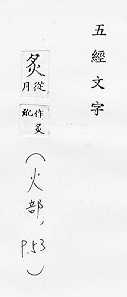 五經文字
炙
從月
作炙訛
（火部，P.53）